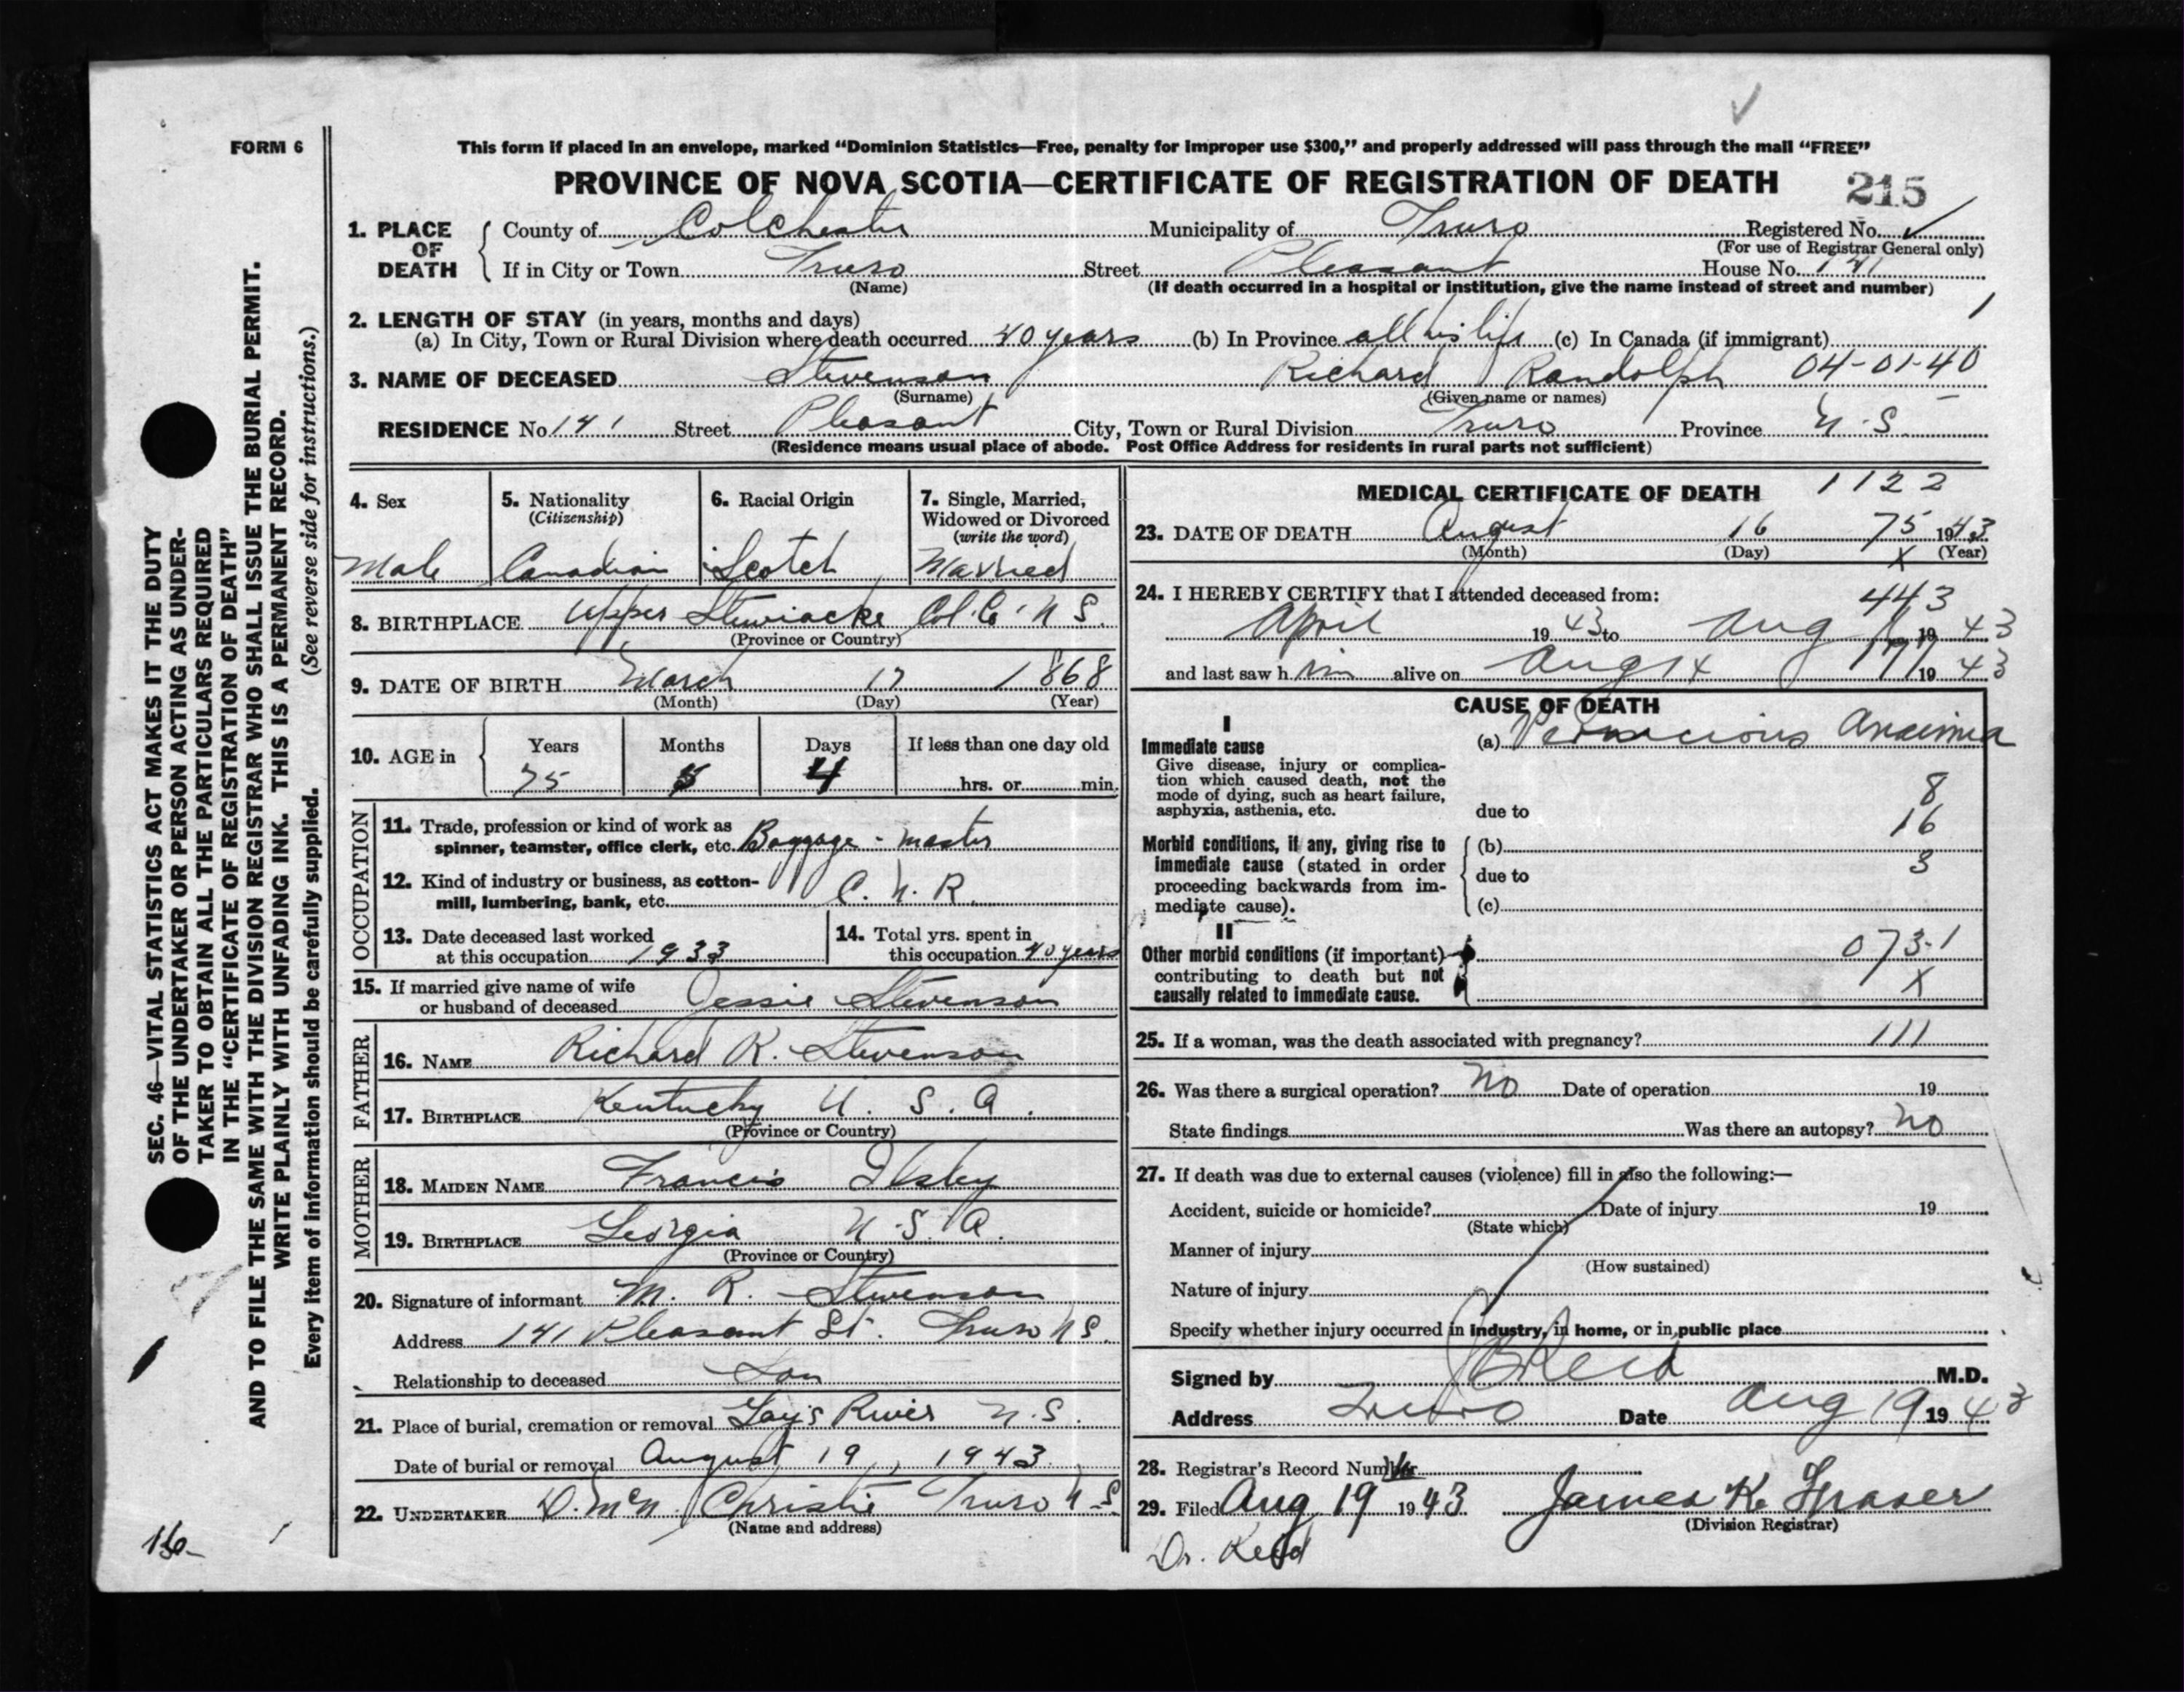 FORM 6
This form if placed in an envelope, marked "Dominion Statistics—Free, penalty for improper use $300," and properly addressed will pass through the mail "FREE"
PROVINCE OF NOVA SCOTIA—CERTIFICATE OF REGISTRATION OF DEATH 215
1. PLACE OF DEATH County of Colchester Municipality of Truro Registered No.
(For use of Registrar General only)
If in City or Town Truro Street Pleasant House No. 141
(Name) (If death occurred in a hospital or institution, give the name instead of street and number)
2. LENGTH OF STAY (in years, months and days)
(a) In City, Town or Rural Division where death occurred 40 years (b) In Province all his life (c) In Canada (if immigrant) 1
3. NAME OF DECEASED Stevenson Richard Randolph 04-01-40
(Surname) (Given name or names)
RESIDENCE No. 141 Street Pleasant City, Town or Rural Division Truro Province N.S.
(Residence means usual place of abode. Post Office Address for residents in rural parts not sufficient)
4. Sex Male
5. Nationality (Citizenship) Canadian
6. Racial Origin Scotch
7. Single, Married, Widowed or Divorced (write the word) Married
8. BIRTHPLACE Upper Stewiacke Col. Co. N S.
(Province or Country)
9. DATE OF BIRTH March 17 1868
(Month) (Day) (Year)
10. AGE in Years Months Days If less than one day old
75 5 4 hrs. or min.
OCCUPATION
11. Trade, profession or kind of work as
spinner, teamster, office clerk, etc. Baggage-master
12. Kind of industry or business, as cotton-
mill, lumbering, bank, etc. C. N. R.
13. Date deceased last worked
at this occupation 1933
14. Total yrs. spent in
this occupation 40 years
15. If married give name of wife
or husband of deceased Jessie Stevenson
FATHER
16. NAME Richard R. Stevenson
17. BIRTHPLACE Kentucky U. S. A.
(Province or Country)
MOTHER
18. MAIDEN NAME Francis Ilsley
19. BIRTHPLACE Georgia U.S.A.
(Province or Country)
20. Signature of informant M. R. Stevenson
Address 141 Pleasant St. Truro N S.
Relationship to deceased Son
21. Place of burial, cremation or removal Gay's River N.S.
Date of burial or removal August 19, 1943
22. UNDERTAKER D. McN. Christie Truro N S.
(Name and address)
MEDICAL CERTIFICATE OF DEATH 1122
23. DATE OF DEATH August 16 75 1943
(Month) (Day) X (Year)
24. I HEREBY CERTIFY that I attended deceased from: 443
April 1943 to Aug 19 43
and last saw him alive on Aug 14 19 43
CAUSE OF DEATH
I
Immediate cause
Give disease, injury or complica-
tion which caused death, not the
mode of dying, such as heart failure,
asphyxia, asthenia, etc.
(a) Pernicious Anaemia
8
due to
16
Morbid conditions, if any, giving rise to
immediate cause (stated in order
proceeding backwards from im-
mediate cause).
(b)
3
due to
(c)
II
Other morbid conditions (if important)
contributing to death but not
causally related to immediate cause.
073.1
X
25. If a woman, was the death associated with pregnancy? 111
26. Was there a surgical operation? No Date of operation 19
State findings Was there an autopsy? No
27. If death was due to external causes (violence) fill in also the following:—
Accident, suicide or homicide? Date of injury 19
(State which)
Manner of injury
(How sustained)
Nature of injury
Specify whether injury occurred in industry, in home, or in public place
Signed by J B Reid M.D.
Address Truro Date Aug 19 1943
28. Registrar's Record Number
29. Filed Aug 19 1943 James K. Fraser
(Division Registrar)
Dr. Reid
SEC. 46—VITAL STATISTICS ACT MAKES IT THE DUTY
OF THE UNDERTAKER OR PERSON ACTING AS UNDER-
TAKER TO OBTAIN ALL THE PARTICULARS REQUIRED
IN THE "CERTIFICATE OF REGISTRATION OF DEATH"
AND TO FILE THE SAME WITH THE DIVISION REGISTRAR WHO SHALL ISSUE THE BURIAL PERMIT.
WRITE PLAINLY WITH UNFADING INK. THIS IS A PERMANENT RECORD.
Every item of information should be carefully supplied. (See reverse side for instructions.)